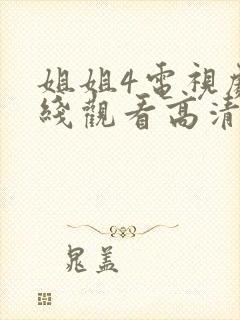 姐姐4電視劇
綫觀看高清
晁蓋